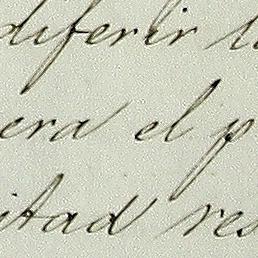 diferir
era el p
itad res